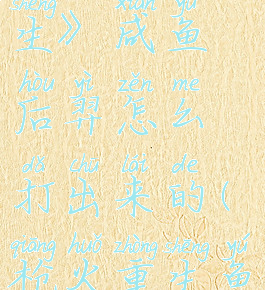 shēng xián yú
生》咸鱼
hòu yì zěn me
后羿怎么
dǎ chū lái de
打出来的(
qiāng huǒ zhòng shēng yú
枪火重生鱼